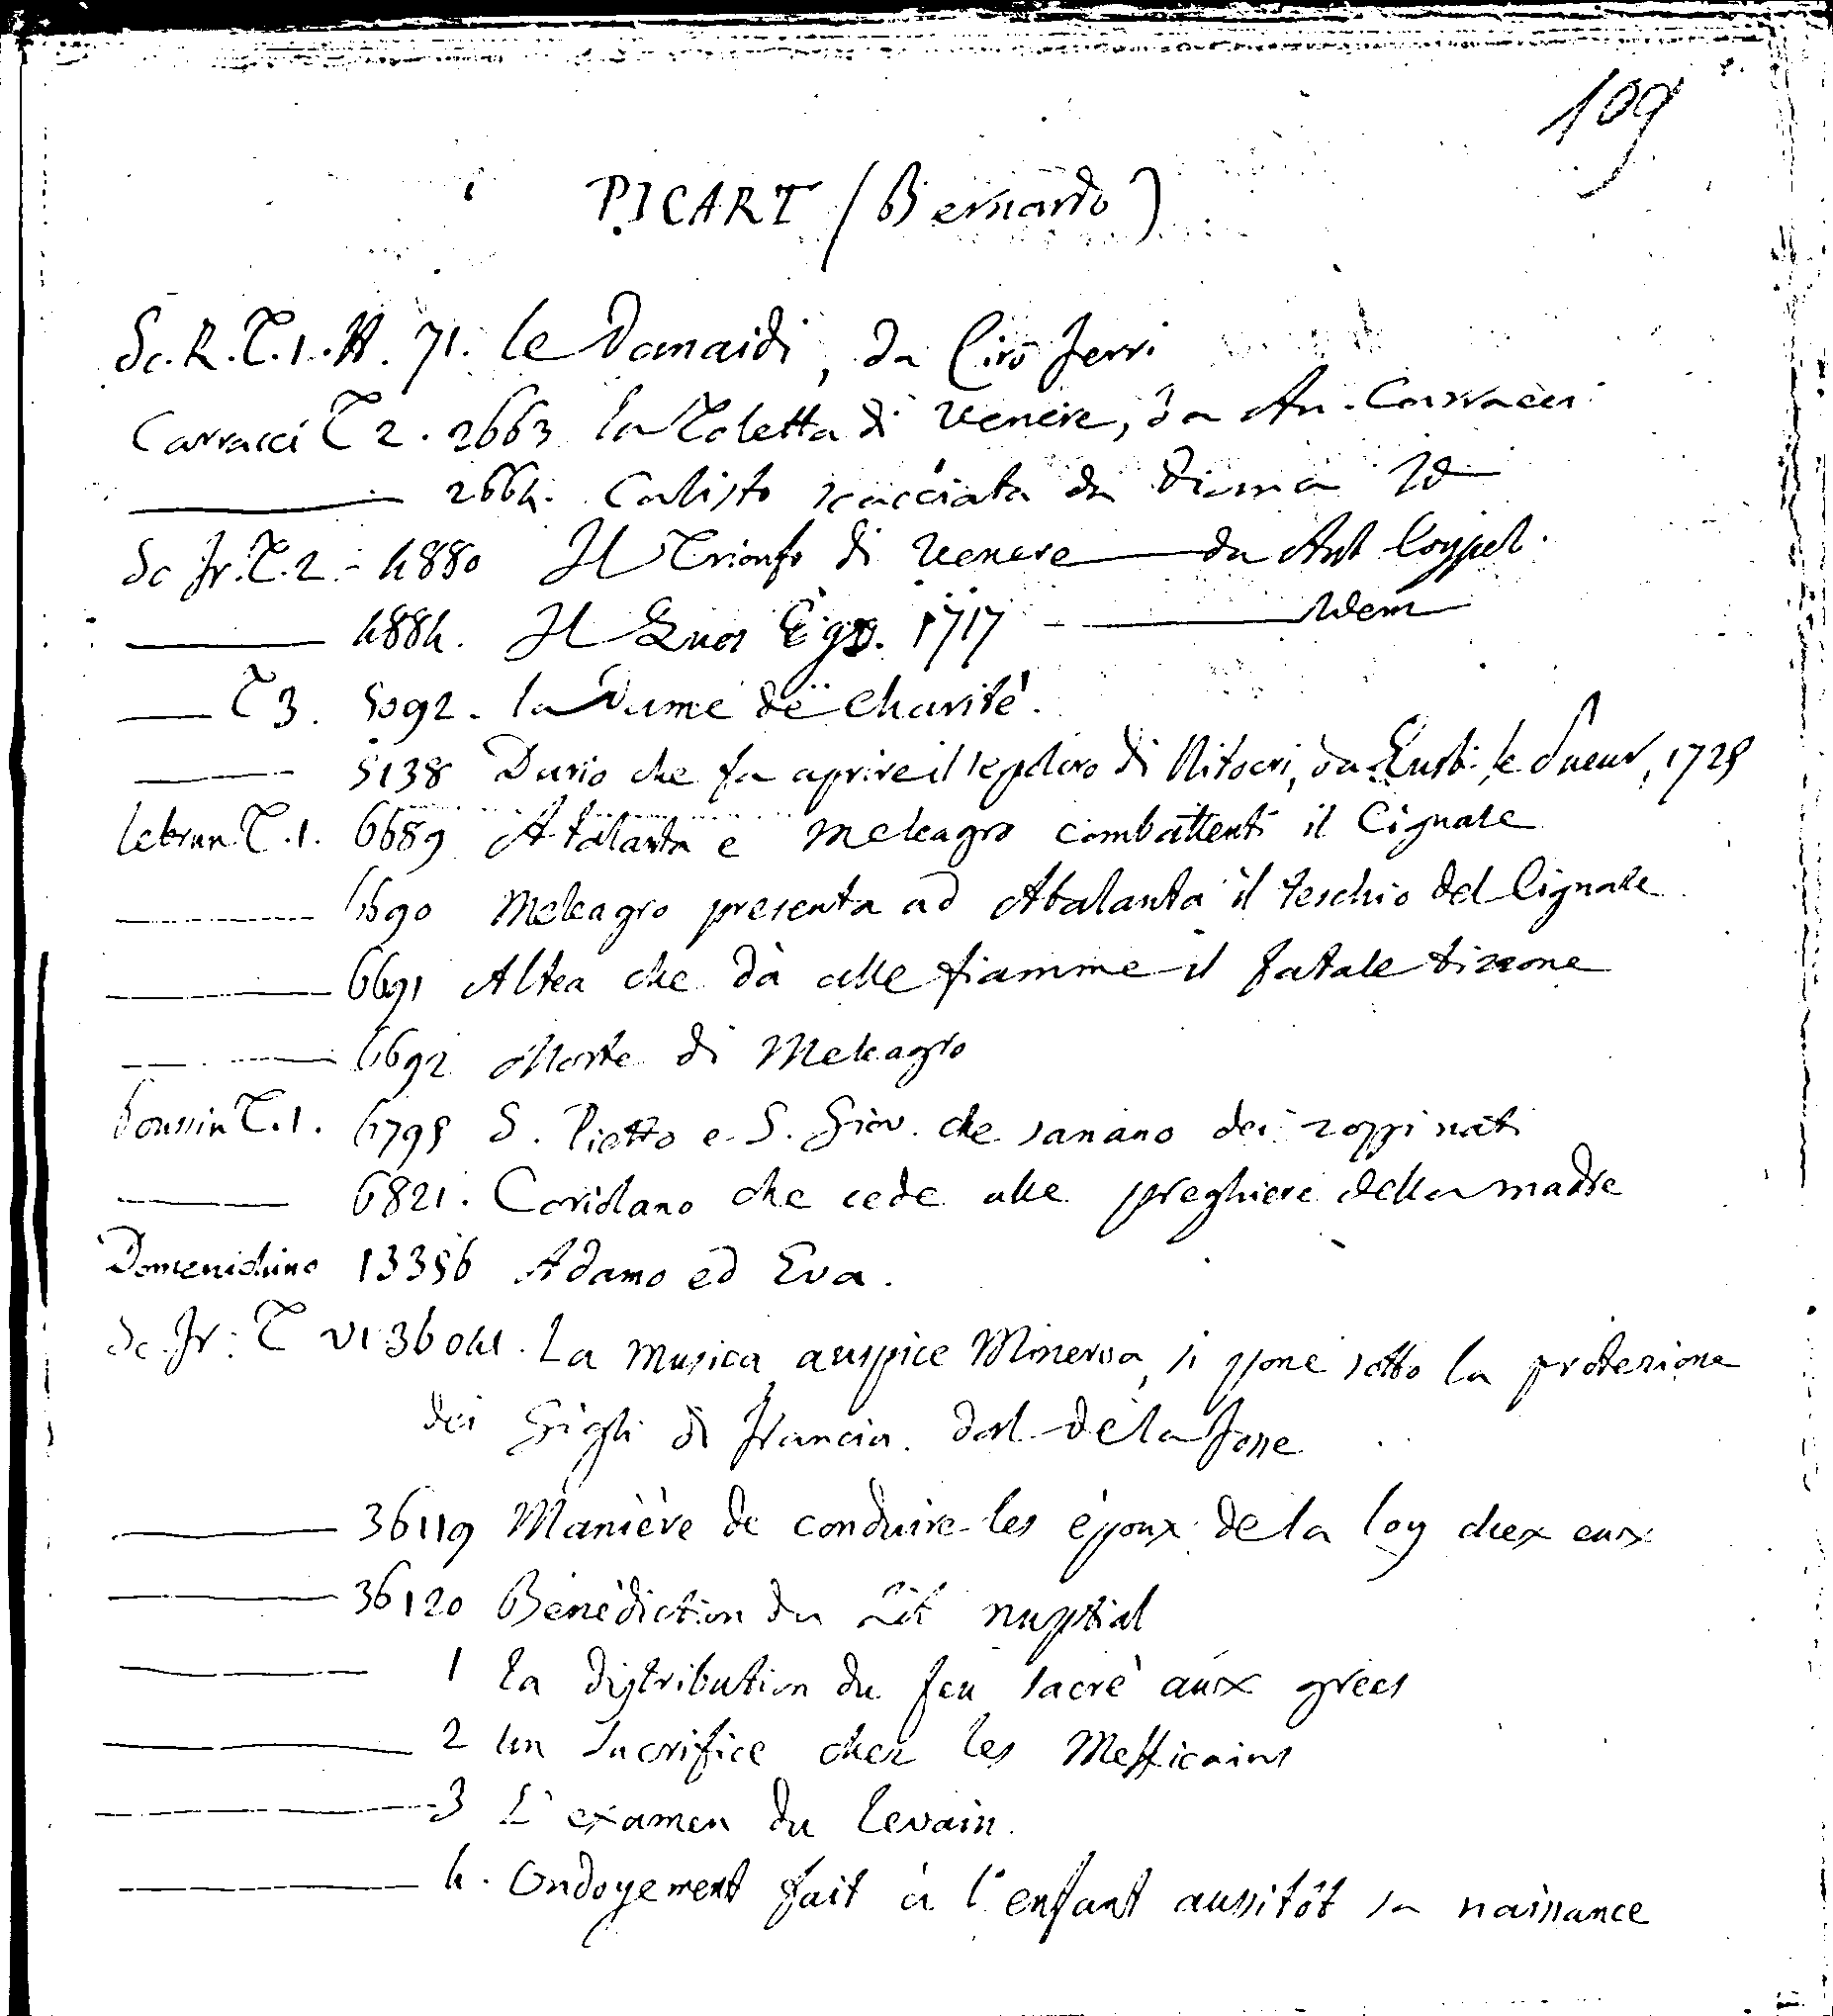 109
PICART (Bernardo)
Sc. R. T. 1. N. 71. le Danaidi, da Ciro Ferri
Carracci T 2. 2663 la Toletta di Venere, da An. Carracci
——— 2664. Calisto scacciata da Diana Id—
Sc Fr. T. 2 - 4880 Il Trionfo di Venere——da Ant Coypel.
——— 4884. Il Quos Ego. 1717 ———Idem
— T 3. 5092. la Dame de Charité.
——— 5138 Dario che fa aprire il sepolcro di Nitocri, da Eust. le Sueur, 1725
lebrun T. 1. 6689 Atalanta e Meleagro combattenti il Cignale
——— 6690 Meleagro presenta ad Atalanta il teschio del Cignale
——— 6691 Altea che dà alle fiamme il fatale tizzone
——— 6692 Morte di Meleagro
Poussin T. 1. 6795 S. Pietro e S. Giov. che sanano dei zoppi nati
——— 6821. Coriolano che cede alle preghiere della madre
Domenichino 13356 Adamo ed Eva.
Sc. Fr. T VI 36041. La Musica, auspice Minerva, si pone sotto la protezione
dei Gigli di Francia. dal de la Fosse
——— 36119 Manière de conduire les époux de la loy chex eux
——— 36120 Bénédiction du lit nuptial
——— 1 la distribution du feu sacré aux grecs
——— 2 un Sacrifice chez les Messicains
——— 3 L'examen du levain.
——— 4. Ondoyement fait à l'enfant aussitôt sa naissance